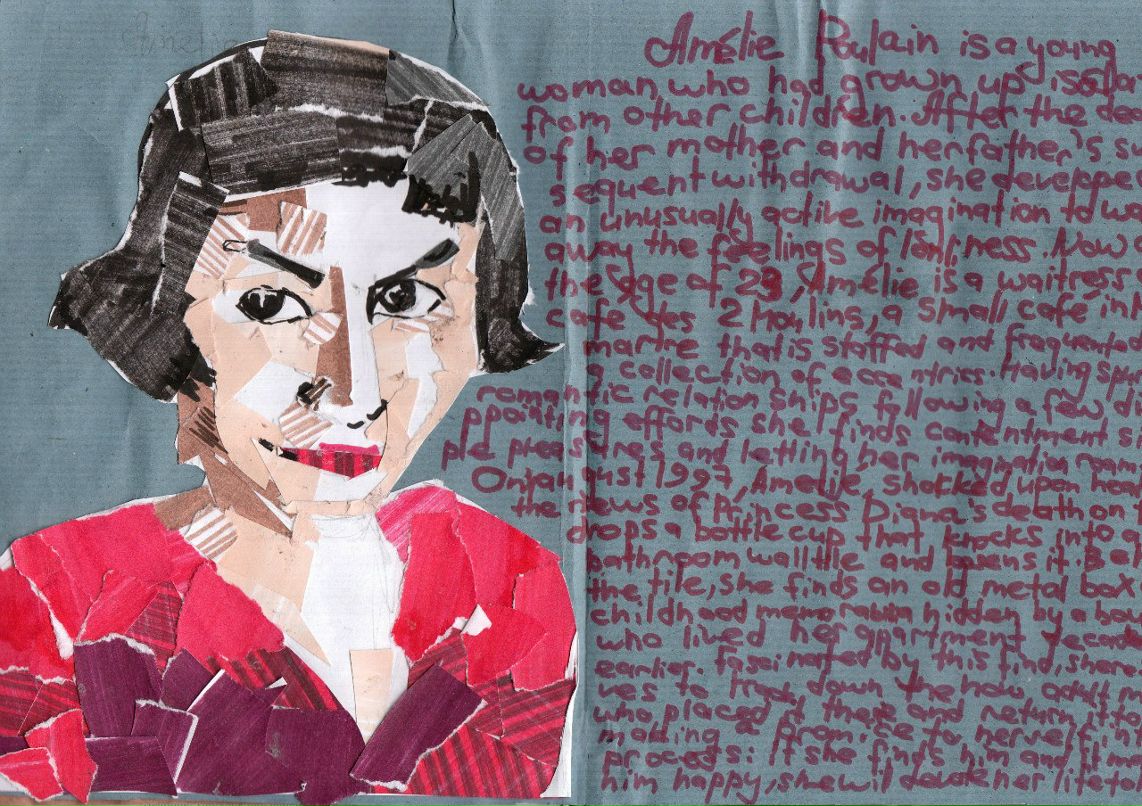 Amélie
Amélie Poulain is a young
woman, who had grown up isolat
from other children. After the dea
of her mother and her father's su
sequent withdrawal, she developped
an unusually active imagination to wa
away the feelings of loneliness. Now
the age of 23, Amélie is a waitress
cafe des 2 Moulins, a small café in
martre that is staffed and frequented
a collection of eccentrics. Having spu
romantic relationships following a few di
ppointing efforts she finds contentment
ple pleasures and letting her imagination roam
On august 1997, Amelie, shocked upon
the news of Princess Diana's death on
drops a bottle cup that knocks into a
bathroom wall tile and loosens it. Be
the tile, she finds an old metal box
childhood memorabilia hidden by a bo
who lived her apartment decade
earlier. fascinated by this find, she re
ves to track down the now adult m
who placed it there and return it to
making a promise to herself in
process: If she finds him and it ma
him happy, she wil devote her life to